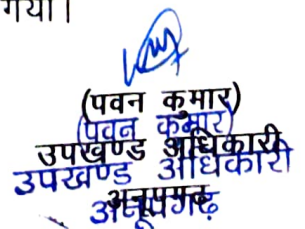 गया।
(पवन कुमार)
(पवन कुमार)
उपखण्ड अधिकारी
उपखण्ड अधिकारी
अनूपगढ़
अनूपगढ़